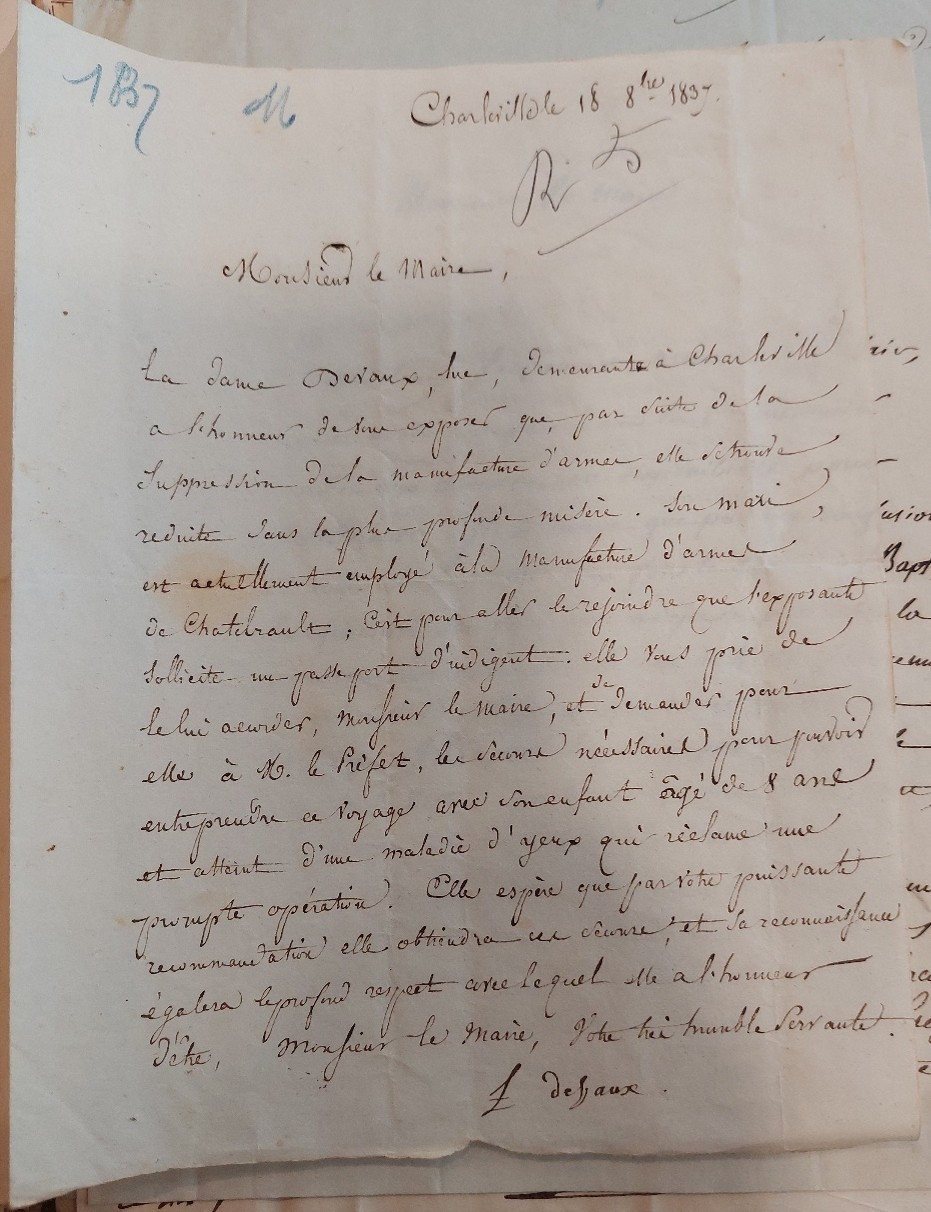 1837 M
Charleville le 18 8bre 1837.
R
Monsieur le Maire,
La dame Devaux, , demeurante à Charleville
a l'honneur de vous exposer que, par suite de la
suppression de la manufacture d'armes, elle se trouve
reduite dans la plus profonde misère. Son mari,
est actuellement employé à la manufacture d'armes
de Chatelrault; C'est pour aller le rejoindre que l'exposante
sollicite un passeport d'indigent. elle vous prie de
le lui accorder, Monsieur le Maire, et de demander pour
elle à M. le Préfet, les secours nécessaires pour pouvoir
entreprendre ce voyage avec son enfant âgé de 8 ans
et atteint d'une maladie d'yeux qui réclame une
prompte opération. Elle espère que par votre puissante
recommandation elle obtiendra ces secours, et sa reconnaissance
égalera le profond respect avec lequel elle a l'honneur
d'être, Monsieur le Maire, Votre très humble Servante.
f devaux.